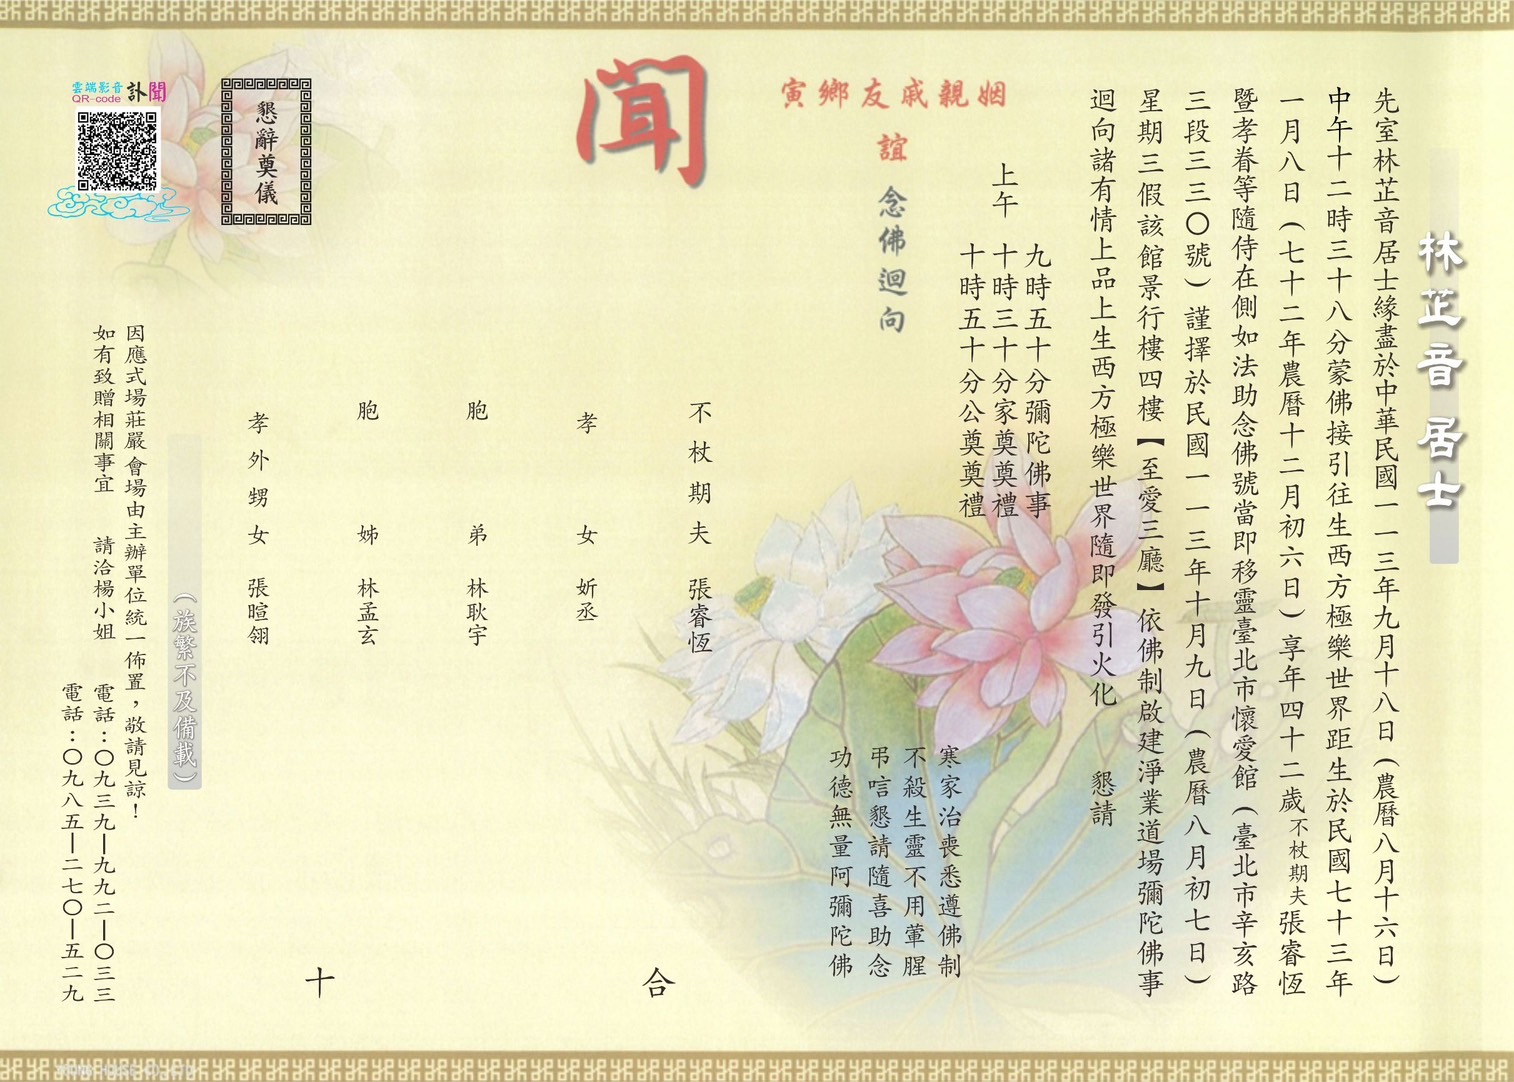 林芷音居士
先室林芷音居士緣盡於中華民國一一三年九月十八日(農曆八月十六日)
中午十二時三十八分蒙佛接引往生西方極樂世界距生於民國七十三年
一月八日(七十二年農曆十二月初六日)享年四十二歲不杖期夫張睿恆
暨孝眷等隨侍在側如法助念佛號當即移靈臺北市懷愛館(臺北市辛亥路
三段三三〇號)謹擇於民國一一三年十月九日(農曆八月初七日)
星期三假該館景行樓四樓【至愛三廳】依佛制啟建淨業道場彌陀佛事
迴向諸有情上品上生西方極樂世界隨即發引火化 懇請
九時五十分彌陀佛事
上午 十時三十分家奠奠禮
十時五十分公奠奠禮
寒家治喪悉遵佛制
不殺生靈不用葷腥
弔唁懇請隨喜助念
功德無量阿彌陀佛
姻親戚友鄉寅
誼 念佛迴向
聞
不杖期夫 張睿恆
孝女 妡丞
胞弟 林耿宇
胞姊 林孟玄
孝外甥女 張暄翎
合
十
(族繁不及備載)
懇辭奠儀
因應式場莊嚴會場由主辦單位統一佈置,敬請見諒!
如有致贈相關事宜 請洽楊小姐 電話:〇九三九—九九二—〇三三
電話:〇九八五—二七〇—五二九
雲端影音
QR-code
訃聞